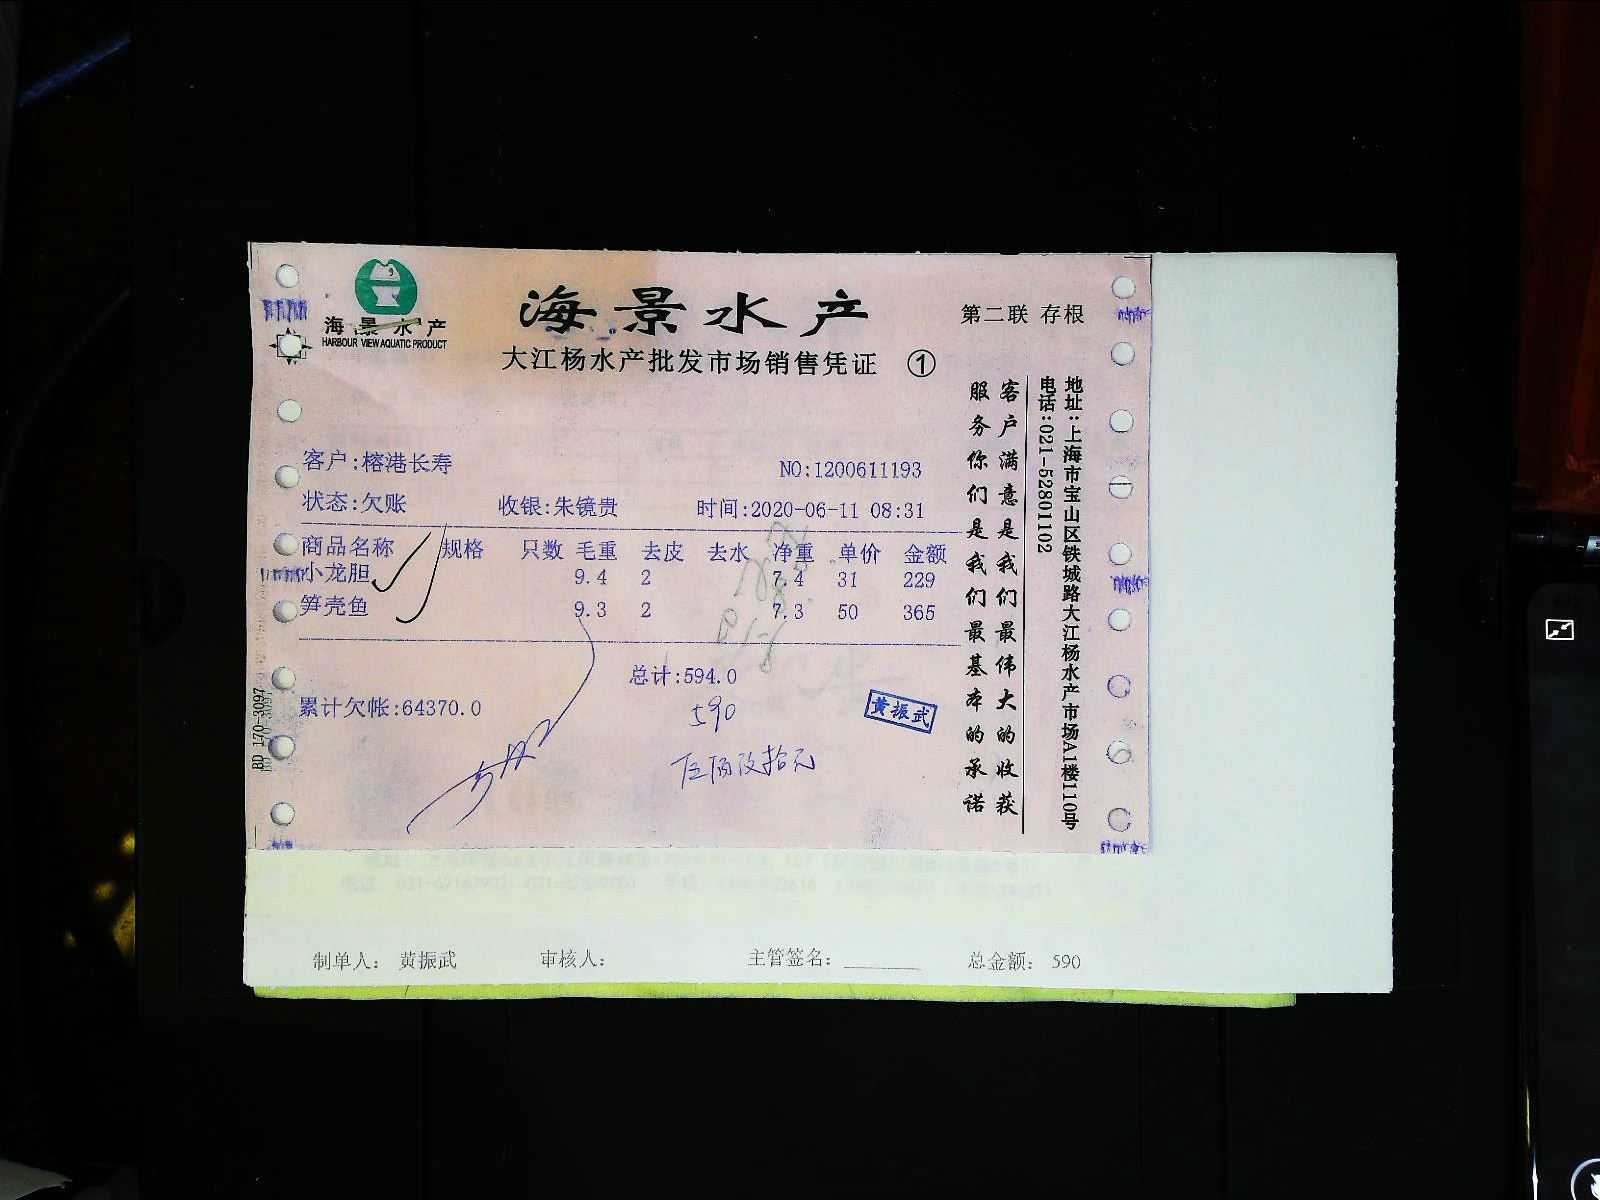 海景水产
HARBOUR VIEW AQUATIC PRODUCT
海景水产
第二联 存根
大江杨水产批发市场销售凭证 ①
客户:榕港长寿
NO:1200611193
状态:欠账 收银:朱镜贵 时间:2020-06-11 08:31
商品名称 规格 只数 毛重 去皮 去水 净重 单价 金额
小龙胆 9.4 2 7.4 31 229
笋壳鱼 9.3 2 7.3 50 365
总计:594.0
累计欠帐:64370.0
590
黄振武
客户满意是我们最伟大的收获
服务你们是我们最基本的承诺
地址:上海市宝山区铁城路大江杨水产市场A1楼110号
电话:021-52801102
BD 170-3097
制单人: 黄振武 审核人: 主管签名: 总金额: 590